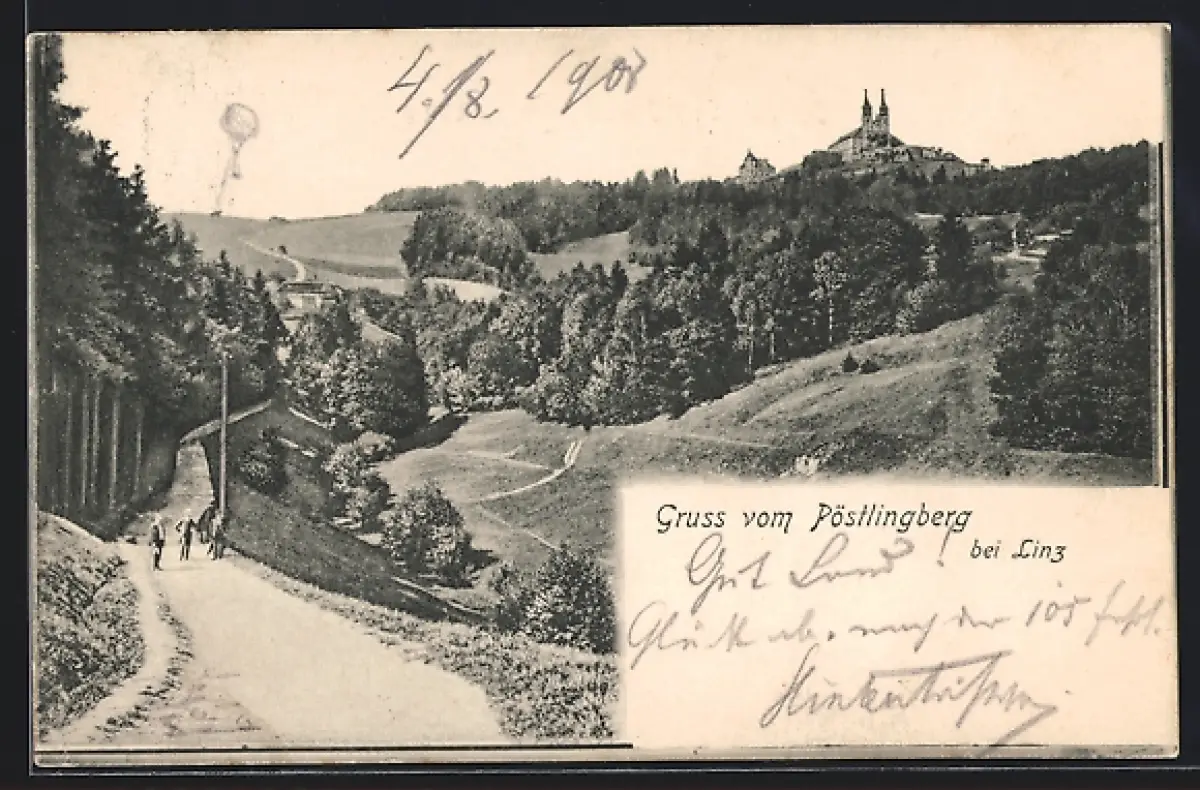 4./8. 1908
Gruss vom Pöstlingberg
bei Linz
Gut Land!
Glück ab. nach der 105 Fahrt.